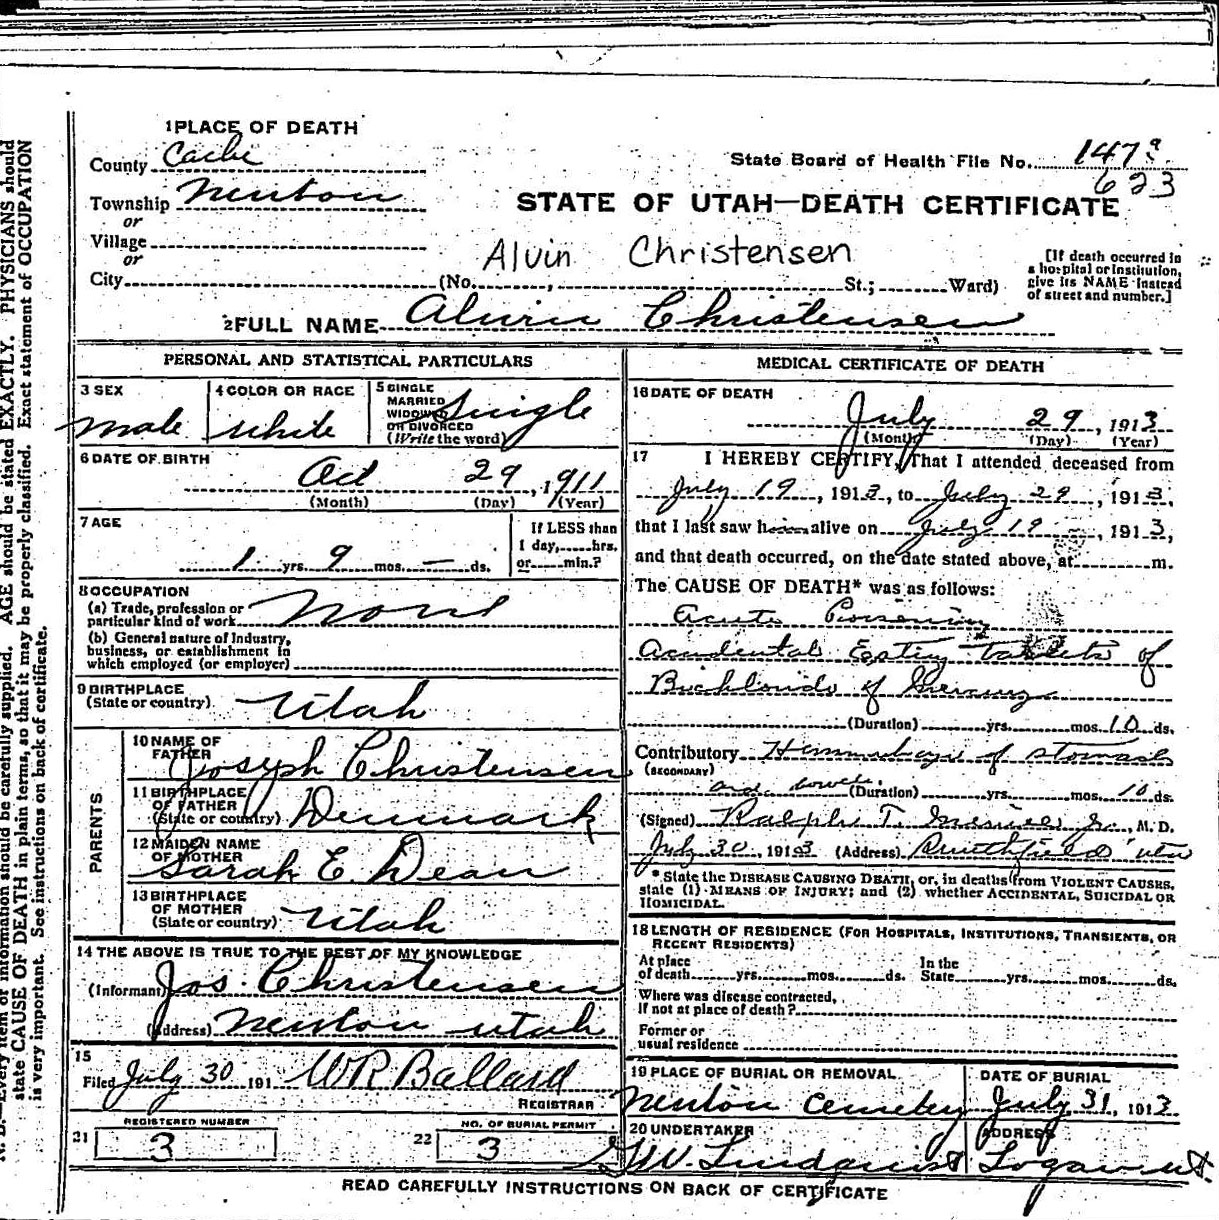 1 PLACE OF DEATH
County Cache
State Board of Health File No. 147
623
Township Newton
STATE OF UTAH—DEATH CERTIFICATE
or
Village
or
Alvin Christensen
City (No. , St.; Ward)
[If death occurred in a hospital or institution, give its NAME instead of street and number.]
2 FULL NAME Alvin Christensen
PERSONAL AND STATISTICAL PARTICULARS
3 SEX
male
4 COLOR OR RACE
white
5 SINGLE
MARRIED
WIDOWED
OR DIVORCED
(Write the word)
Single
6 DATE OF BIRTH
Oct 29, 1911
(Month) (Day) (Year)
7 AGE
1 yrs. 9 mos. — ds.
If LESS than
1 day, hrs.
or min.?
8 OCCUPATION
(a) Trade, profession or
particular kind of work None
(b) General nature of Industry,
business, or establishment in
which employed (or employer)
9 BIRTHPLACE
(State or country) Utah
PARENTS
10 NAME OF
FATHER
Joseph Christensen
11 BIRTHPLACE
OF FATHER
(State or country) Denmark
12 MAIDEN NAME
OF MOTHER
Sarah E. Dean
13 BIRTHPLACE
OF MOTHER
(State or country) Utah
14 THE ABOVE IS TRUE TO THE BEST OF MY KNOWLEDGE
(Informant) Jos. Christensen
(Address) Newton Utah
15
Filed July 30 191 W R Ballard
REGISTRAR
REGISTERED NUMBER
21 3
NO. OF BURIAL PERMIT
22 3
MEDICAL CERTIFICATE OF DEATH
16 DATE OF DEATH
July 29, 1913
(Month) (Day) (Year)
17 I HEREBY CERTIFY, That I attended deceased from
July 19, 1913, to July 29, 1913,
that I last saw him alive on July 19, 1913,
and that death occurred, on the date stated above, at m.
The CAUSE OF DEATH* was as follows:
Acute Poisoning
Accidental Eating tablets of
Bichloride of Mercury
(Duration) yrs. mos. 10 ds.
Contributory Hemmorhage of stomach
(SECONDARY)
and bowels. (Duration) yrs. mos. 10 ds.
(Signed) Ralph T. Jr., M. D.
July 30, 1913 (Address) Smithfield Utah
* State the DISEASE CAUSING DEATH, or, in deaths from VIOLENT CAUSES,
state (1) MEANS OF INJURY; and (2) whether ACCIDENTAL, SUICIDAL OR
HOMICIDAL.
18 LENGTH OF RESIDENCE (FOR HOSPITALS, INSTITUTIONS, TRANSIENTS, OR
RECENT RESIDENTS)
At place
of death yrs. mos. ds.
In the
State yrs. mos. ds.
Where was disease contracted,
if not at place of death?
Former or
usual residence
19 PLACE OF BURIAL OR REMOVAL
Newton Cemetery
DATE OF BURIAL
July 31, 1913
20 UNDERTAKER
Lindquist
ADDRESS
Logan Ut.
READ CAREFULLY INSTRUCTIONS ON BACK OF CERTIFICATE
N. B.—Every item of information should be carefully supplied. AGE should be stated EXACTLY. PHYSICIANS should
state CAUSE OF DEATH in plain terms, so that it may be properly classified. Exact statement of OCCUPATION
is very important. See instructions on back of certificate.